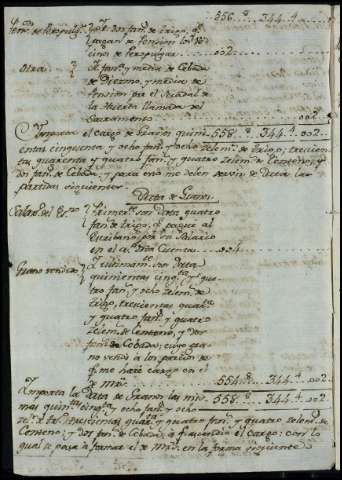 556.. 344..
dos fan.s de trigo, q.e
pagan de Pension los Ve-
cinos de
Otra
fan.a y media de Cebada
de Diezmo, y media de
Pension por el
de la Huerta llamada del
Sacramento
Importa el Cargo de Granos quini- 558.. 344.. 002..
entas cinquenta y ocho fan.s y ocho zelem.s de trigo, trecientas
quarenta y quatro fan.s y quatro zelem.s de Centeno, y
dos fan.s de Cebada, y para ello me deben servir de Data las
partidas siguientes
Data de Granos
Primeram.te son Data quatro
fan.s de trigo, q.e pagué al
por su Salario
en el año de esta Cuenta 004
Grano vendido
Ultimam.te son Data
quinientas cinq.ta y qua-
tro fan.s y ocho zelem.s de
trigo, trescientas quar.ta
y quatro fan.s y quatro
zelem.s de Centeno, y dos
fan.s de Cebada, cuyo gra-
no vendí a los precios de
q.e me haré cargo en el
de mrs. 554.. 344.. 002..
Importa la Data de Granos las mis- 558.. 344.. 002..
mas quin.tas cinq.ta y ocho fan.s y ocho
trescientas quar.ta y quatro fan.s y quatro zelem.s de
Centeno, y dos fan.s de Cebada, el Cargo: con lo
qual se pasa a formar el de mrs. en la forma siguiente